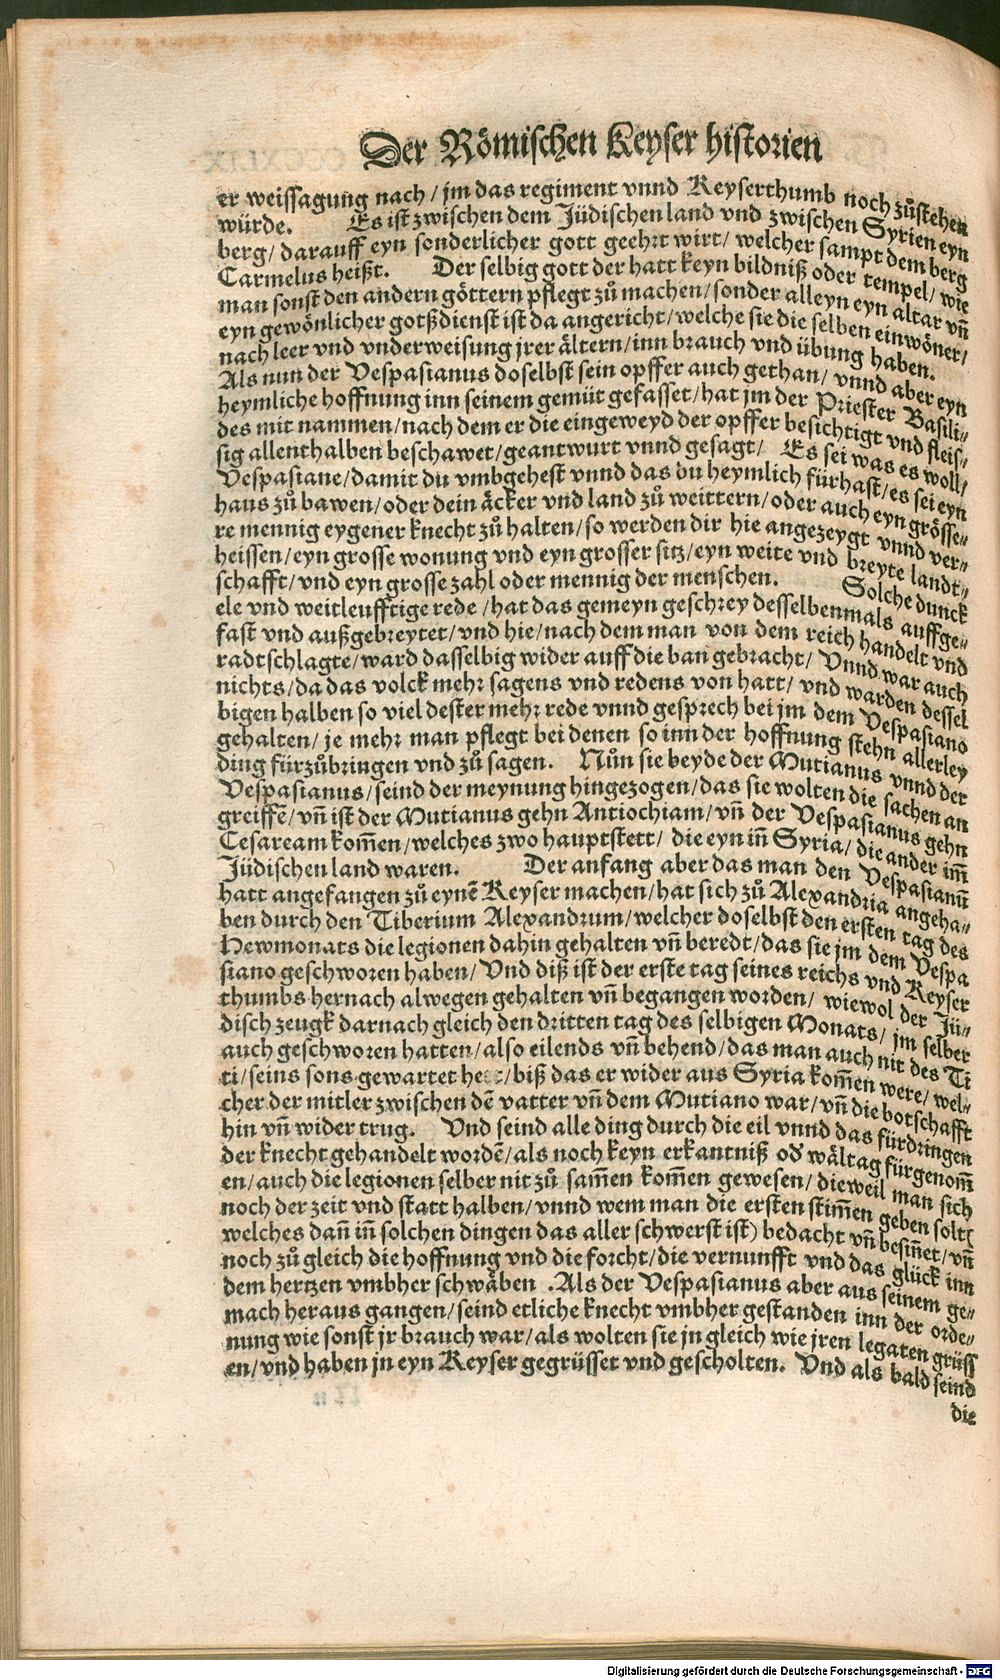 Der Römischen Keyser historien
er weissagung nach / jm das regiment vnnd Keyserthumb noch zůstehen
würde. Es ist zwischen dem Jüdischen land vnd zwischen Syrien eyn
berg / darauff eyn sonderlicher gott geehrt wirt / welcher sampt dem berg
Carmelus heißt. Der selbig gott der hatt keyn bildniß oder tempel / wie
man sonst den andern göttern pflegt zů machen / sonder alleyn eyn altar vñ
eyn gewönlicher gotßdienst ist da angericht / welche sie die selben einwöner /
nach leer vnd vnderweisung jrer ältern / inn brauch vnd übung haben.
Als nun der Vespasianus doselbst sein opffer auch gethan / vnnd aber eyn
heymliche hoffnung inn seinem gemüt gefasset / hat jm der Priester Basili⸗
des mit nammen / nach dem er die eingeweyd der opffer besichtigt vnd fleis⸗
sig allenthalben beschawet / geantwurt vnnd gesagt / Es sei was es woll /
Vespasiane / damit du vmbgehest vnnd das du heymlich fürhast / es sei eyn
haus zů bawen / oder dein äcker vnd land zů weittern / oder auch eyn grösse⸗
re mennig eygener knecht zů halten / so werden dir hie angezeygt vnnd ver⸗
heissen / eyn grosse wonung vnd eyn grosser sitz / eyn weite vnd breyte landt⸗
schafft / vnd eyn grosse zahl oder mennig der menschen. Solche dunck
ele vnd weitleufftige rede / hat das gemeyn geschrey desselbenmals auffge⸗
fast vnd außgebreytet / vnd hie / nach dem man von dem reich handelt vnd
radtschlagte / ward dasselbig wider auff die ban gebracht / Vnnd war auch
nichts / da das volck mehr sagens vnd redens von hatt / vnd warden dessel
bigen halben so viel dester mehr rede vnnd gesprech bei jm dem Vespasiano
gehalten / je mehr man pflegt bei denen so inn der hoffnung stehn allerley
ding fürzůbringen vnd zů sagen. Nůn sie beyde der Mutianus vnnd der
Vespasianus / seind der meynung hingezogen / das sie wolten die sachen an
greiffẽ / vñ ist der Mutianus gehn Antiochiam / vñ der Vespasianus gehn
Cesaream kom̃en / welches zwo hauptstett / die eyn iñ Syria / die ander im̃
Jüdischen land waren. Der anfang aber das man den Vespasianũ
hatt angefangen zů eynẽ Keyser machen / hat sich zů Alexandria angeha⸗
ben durch den Tiberium Alexandrum / welcher doselbst den ersten tag des
Hewmonats die legionen dahin gehalten vñ beredt / das sie jm dem Vespa
siano geschworen haben / Vnd diß ist der erste tag seines reichs vnd Keyser
thumbs hernach alwegen gehalten vñ begangen worden / wiewol der Jü⸗
disch zeugk darnach gleich den dritten tag des selbigen Monats / jm selber
auch geschworen hatten / also eilends vñ behend / das man auch nit des Ti
ti / seins sons gewartet hett / biß das er wider aus Syria kom̃en were / wel⸗
cher der mitler zwischen dẽ vatter vñ dem Mutiano war / vñ die botschafft
hin vñ wider trug. Vnd seind alle ding durch die eil vnnd das fürdringen
der knecht gehandelt wordẽ / als noch keyn erkantniß od̕ wältag fürgenom̃
en / auch die legionen selber nit zů sam̃en kom̃en gewesen / dieweil man sich
noch der zeit vnd statt halben / vnnd wem man die ersten stim̃en geben solt (
welches dañ iñ solchen dingen das aller schwerst ist) bedacht vñ besiñet / vñ
noch zů gleich die hoffnung vnd die forcht / die vernunfft vnd das glück inn
dem hertzen vmbher schwäben . Als der Vespasianus aber aus seinem ge⸗
mach heraus gangen / seind etliche knecht vmbher gestanden inn der orde⸗
nung wie sonst jr brauch war / als wolten sie jn gleich wie jren legaten grüss
en / vnd haben jn eyn Keyser gegrüsset vnd gescholten. Vnd als bald seind
die
Digitalisierung gefördert durch die Deutsche Forschungsgemeinschaft - DFG